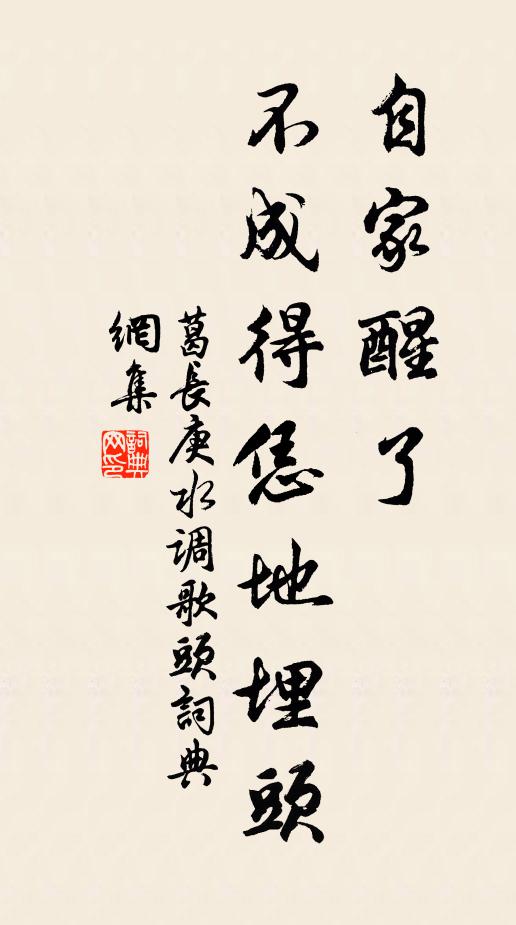 自家醒了
不成得恁地埋頭
葛長庚水调歌頭詞典
網集
詞典
网印